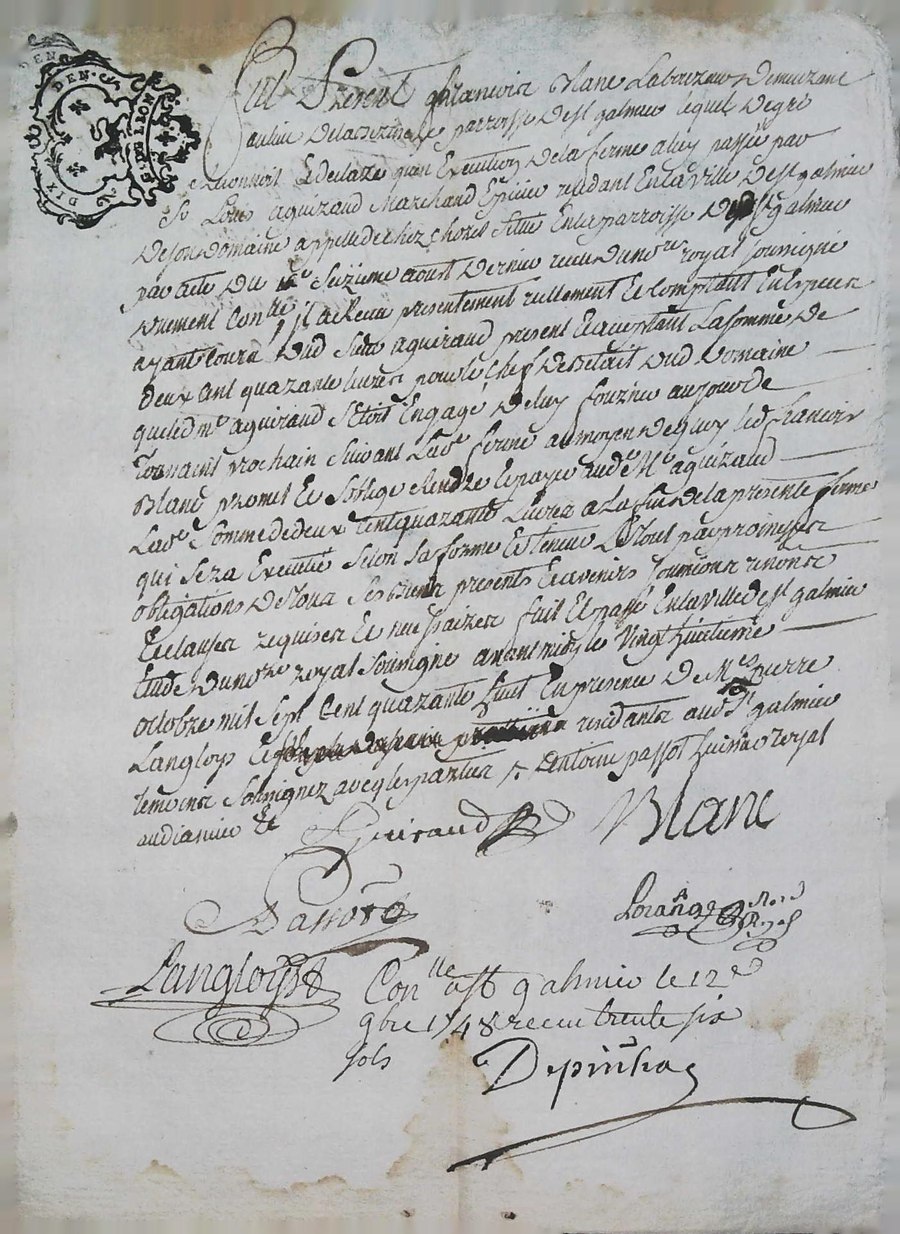 DIX DEN. GEN DE LION
Fut Present françois Blanc Laboureur Demeurant
parroisse de st galmier lequel de gré
Et declare quen Execution de la ferme a luy passée par
sr Louis aguiraud Marchand Epicier residant En la ville De st galmier
De son Domaine appellé de chez situé En la parroisse De st galmier
par acte Du seizieme aoust Dernier receu Du nore royal soussigné
Duement Conlle, il a Receu presentement reellement Et comptant En Especes
ayant cours, Dud sieur aguiraud present Et acceptant La somme De
Deux Cent quarante livres pour le chef De Bétail Dud Domaine
que led mr aguiraud s'etoit Engagé De luy fournir au jour de
Toussaint prochain suivant Lade ferme au moyen De quoy led francois
Blanc promet Et s'oblige Rendre Et payer aud mr aguiraud
Lade Somme de deux Cent quarante Livres a La fin De la presente ferme
qui sera Executée selon sa forme Et teneur Le tout par promesses
obligations De tous ses Biens presents Et avenirs soumions renonce
Et clauses requises Et necessaires fait Et passé En la ville de st galmier
Etude Du nore royal Soussigné avant midy le Vingt huitieme
octobre mil Sept Cent quarante huit En presence De Mes pierre
Langloys Et residants aud st galmier
temoins Soussignez avec les parties + antoine passot huissier royal
audiancier Et
aguiraud Blanc
Passot
Langloys
Conlle a st galmier le 12e
9bre 1748 receu trente six
sols
Depinhac